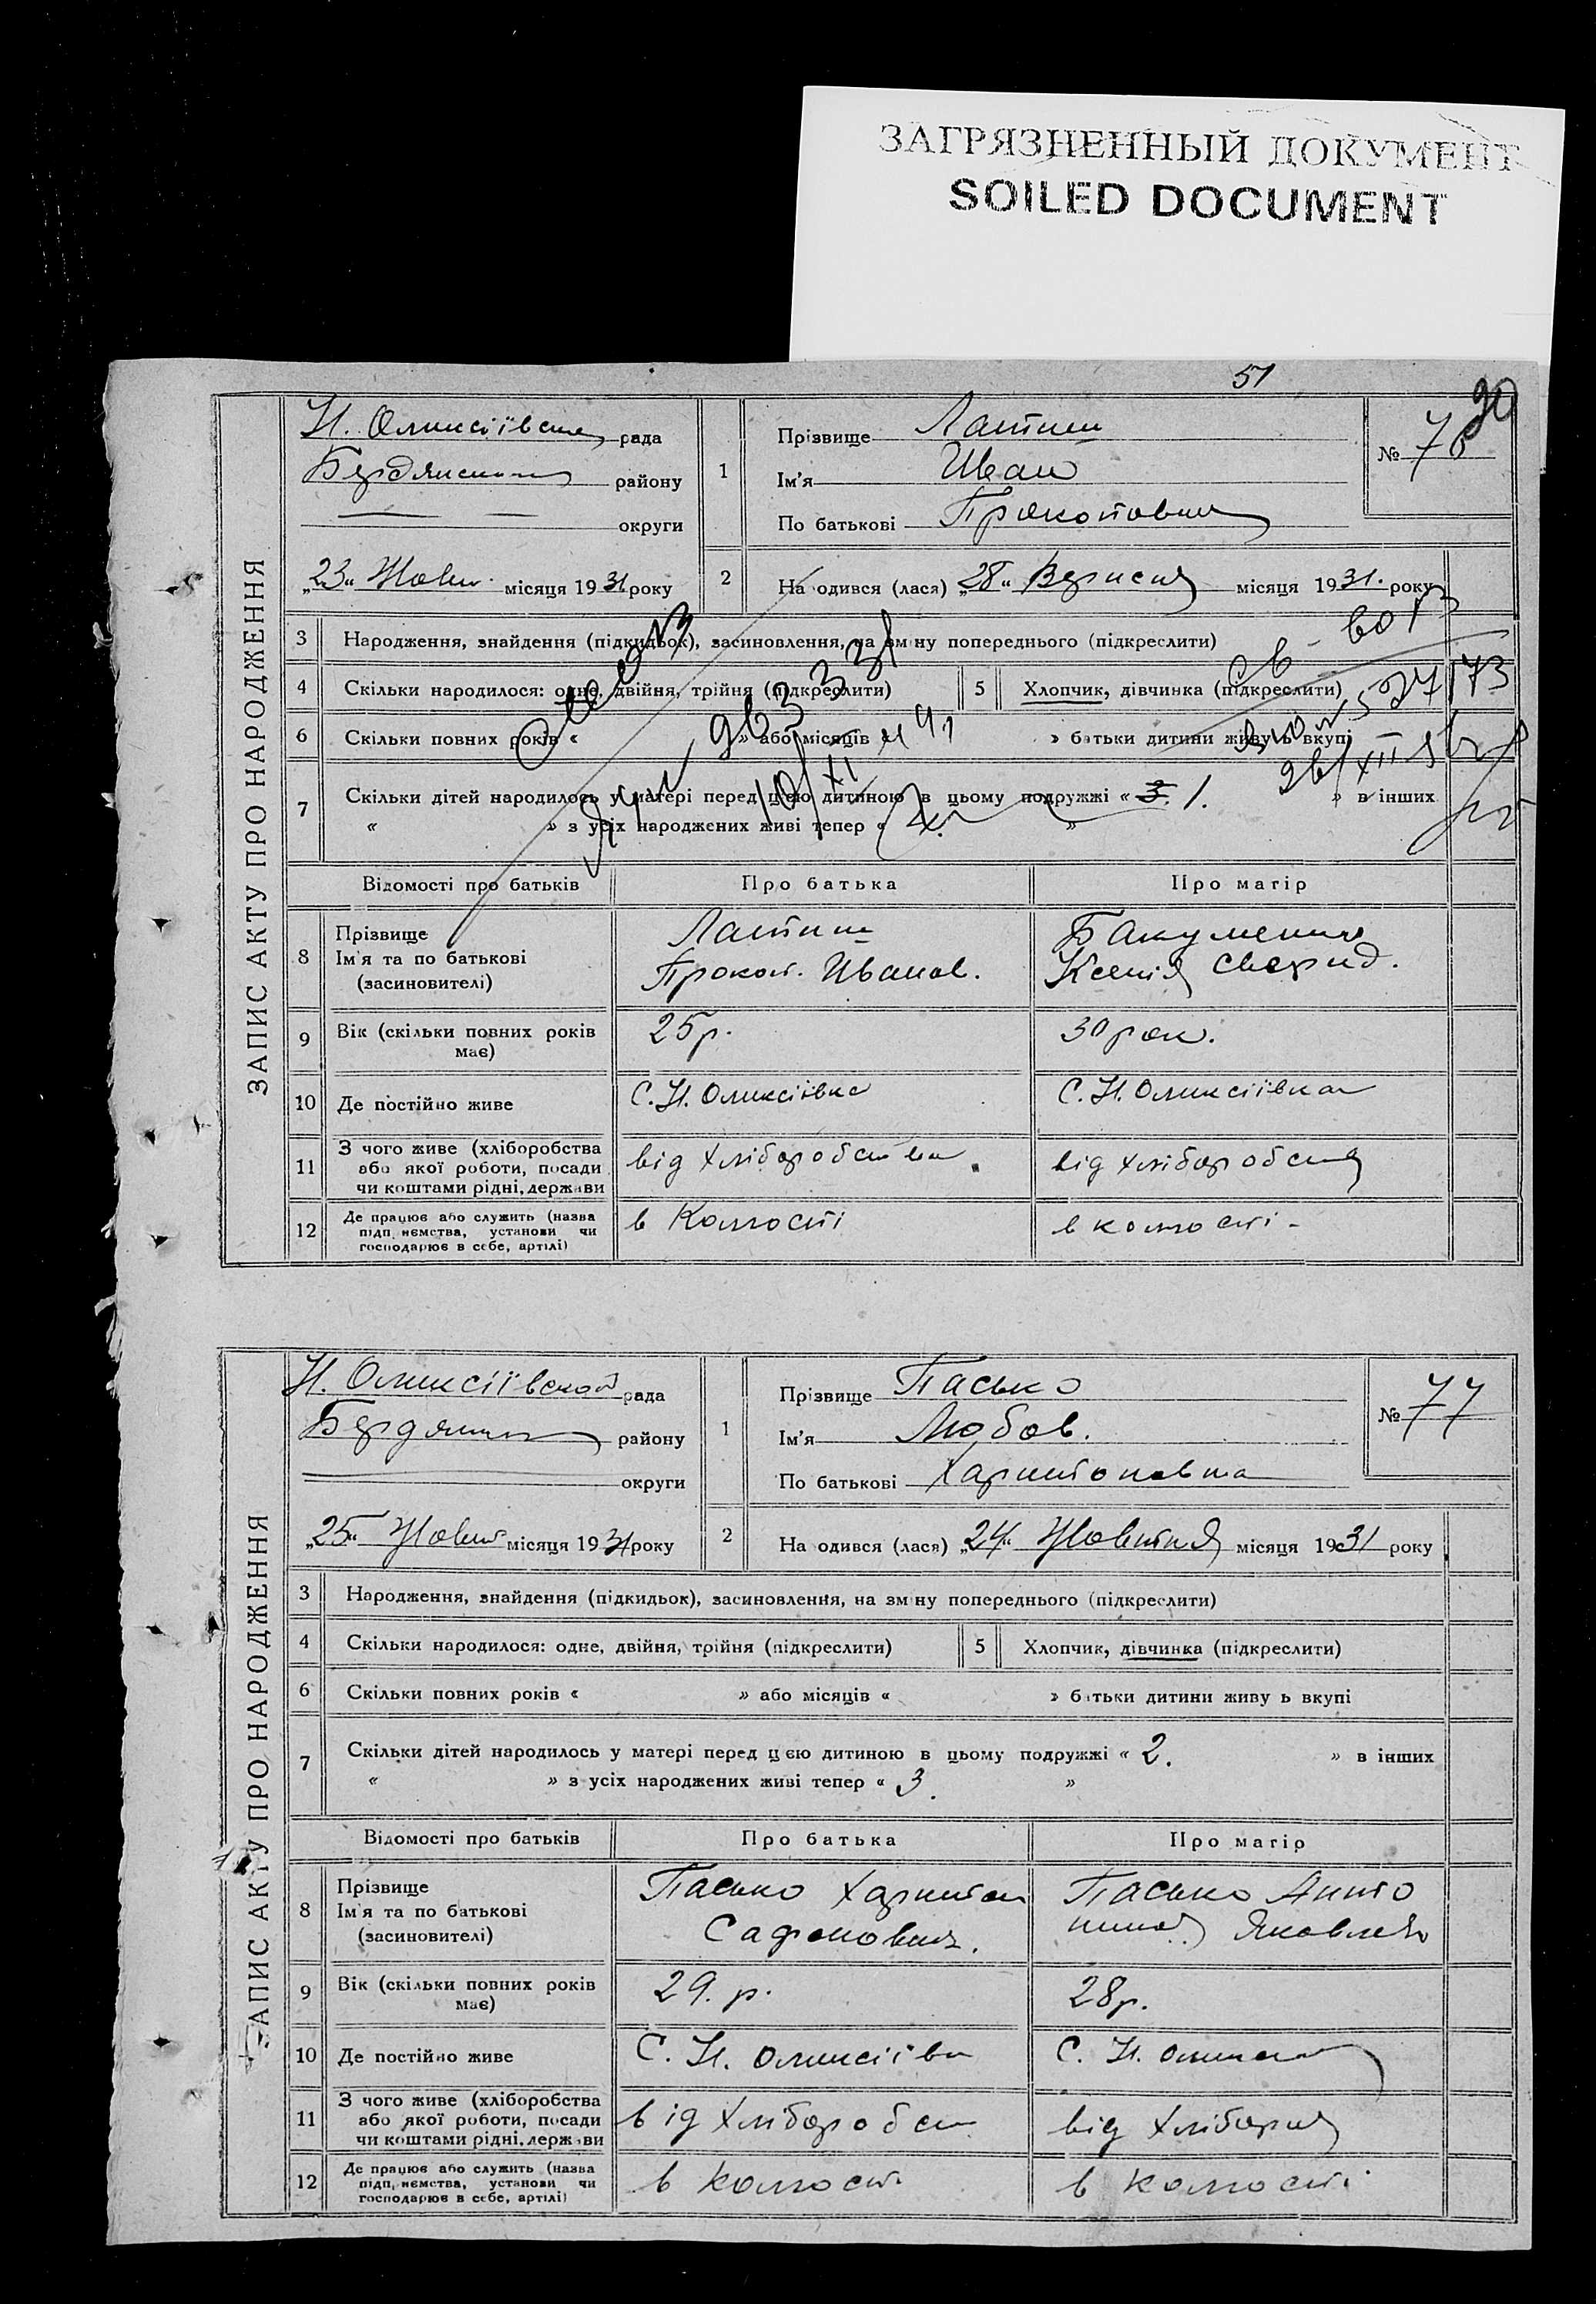 ЗАГРЯЗНЕННЫЙ ДОКУМЕНТ
SOILED DOCUMENT
51
30
ЗАПИС АКТУ ПРО НАРОДЖЕННЯ
Н. Олексіївська рада
Бердянськ району
округи
„23“ Жовт. місяця 1931 року
1
Прізвище Латиш
Ім'я Иван
По батькові Прокопович
№ 76
2
На одився (лася) „28“ Вересня місяця 1931. року
3 Народження, знайдення (підкидьок), засиновлення, на зміну попереднього (підкреслити)
4 Скільки народилося: одне, двійня, трійня (підкреслити)
5 Хлопчик, дівчинка (підкреслити)
6 Скільки повних років « » або місяців « » батьки дитини живу ь вкупі
7 Скільки дітей народилось у матері перед цією дитиною в цьому подружжі « 3. 1. » в інших
« » з усіх народжених живі тепер « »
Відомості про батьків Про батька Про матір
8 Прізвище
Ім'я та по батькові
(засиновителі)
Латиш
Прокоп. Иванов.
Бакуменко
Ксенія Сверид.
9 Вік (скільки повних років
має)
25 р.
30 рок.
10 Де постійно живе
С. Н. Олексіївка
С. Н. Олексіївка
11 З чого живе (хліборобства
або якої роботи, посади
чи коштами рідні, держави
від хліборобства
від хліборобст
12 Де працює або служить (назва
підп. немства, установи чи
господарює в себе, артілі)
в Колгості
в колгості
ЗАПИС АКТУ ПРО НАРОДЖЕННЯ
Н. Олексіївской рада
Бердянськ району
округи
„25“ Жовт місяця 1931 року
1
Прізвище Пасько
Ім'я Любов.
По батькові Харитоновна
№ 77
2
На одився (лася) „24“ Жовтня місяця 1931 року
3 Народження, знайдення (підкидьок), засиновлення, на зміну попереднього (підкреслити)
4 Скільки народилося: одне, двійня, трійня (підкреслити)
5 Хлопчик, дівчинка (підкреслити)
6 Скільки повних років « » або місяців « » батьки дитини живу ь вкупі
7 Скільки дітей народилось у матері перед цією дитиною в цьому подружжі « 2. » в інших
« » з усіх народжених живі тепер « 3. »
Відомості про батьків Про батька Про матір
8 Прізвище
Ім'я та по батькові
(засиновителі)
Пасько Харитон
Сафонович.
Пасько Анто
нина Яковлев
9 Вік (скільки повних років
має)
29. р.
28 р.
10 Де постійно живе
С. Н. Олексіївк
С. Н. Олекс
11 З чого живе (хліборобства
або якої роботи, посади
чи коштами рідні, держави
від хліборобст
від хлібороб
12 Де працює або служить (назва
підп. немства, установи чи
господарює в себе, артілі)
в колгост.
в колгості